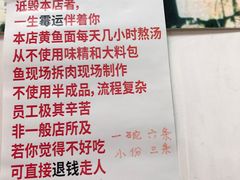 诋毁本店者，
一生霉运伴着你
本店黄鱼面每天几小时熬汤
从不使用味精和大料包
鱼现场拆肉现场制作
不使用半成品，流程复杂
员工极其辛苦
非一般店所及
若你觉得不好吃
可直接退钱走人
一碗六条
小份三条